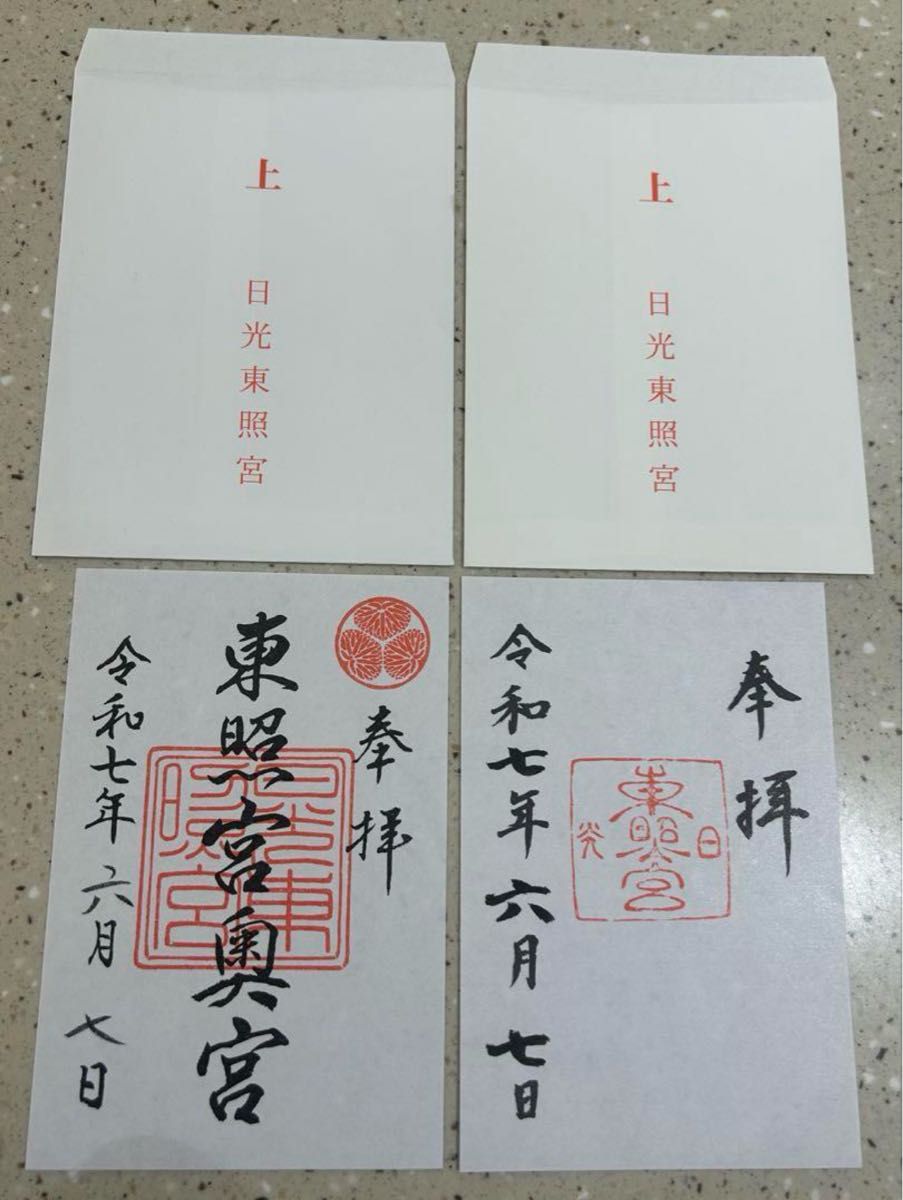 上
日光東照宮
上
日光東照宮
奉拝
東照宮奥宮
令和七年六月七日
奉拝
日
東照宮
光
令和七年六月七日